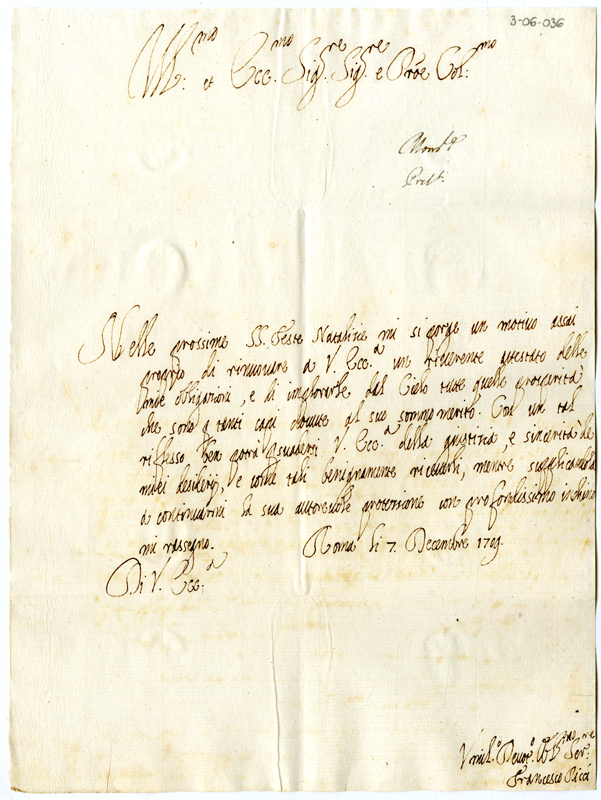 3-06-036
Ill:mo et Ecc:mo Sig:re Sig:re e Pròe Col:mo
Nelle prossime SS. Feste Natalizie mi si porge un motivo assai
proprio di rinuovare a V. Ecc:a un riverente attestato delle
mie obligazioni, e di implorarle dal Cielo tutte quelle prosperità,
che sono p tanti capi dovute al suo sommo merito. Con un tal
riflesso ben potrà psuadersi V. Ecc:a della giustizia, e sincerità de
miei desiderij, e come tali benignamente riceverli, mentre supplicandola
a continuarmi la sua autorevole protezzione con profondissimo inchino
mi rassegno. Roma li 7. Decembre 1709.
Di V. Ecc:a
Vmil:o Deuot:o Ser:re
Francesco